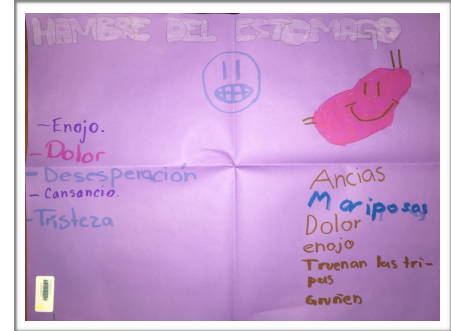 HAMBRE DEL ESTOMAGO
-Enojo.
-Dolor
-Desesperación
-Cansancio.
-Tristeza
Ancias
Mariposas
Dolor
enojo
Truenan las tri-
pas
Gruñen